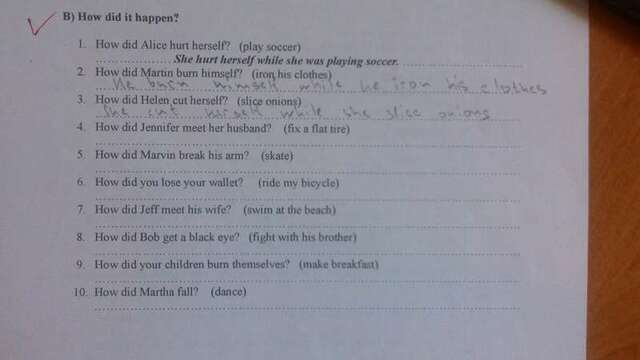 B) How did it happen?
1. How did Alice hurt herself? (play soccer)
She hurt herself while she was playing soccer.
2. How did Martin burn himself? (iron his clothes)
He burn himself while he iron his clothes
3. How did Helen cut herself? (slice onions)
She cut herself while she slice onions
4. How did Jennifer meet her husband? (fix a flat tire)
5. How did Marvin break his arm? (skate)
6. How did you lose your wallet? (ride my bicycle)
7. How did Jeff meet his wife? (swim at the beach)
8. How did Bob get a black eye? (fight with his brother)
9. How did your children burn themselves? (make breakfast)
10. How did Martha fall? (dance)